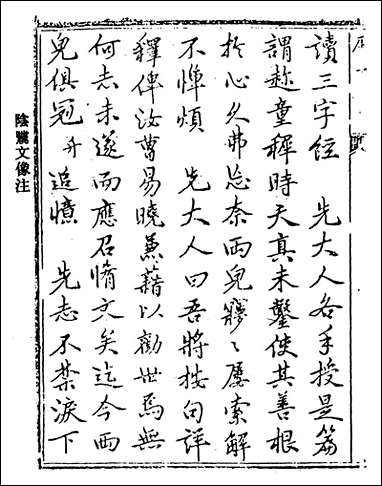 序
讀三字經　先大人各手授是篇
謂趁童稺時天真未鑿使其善根
於心久弗忘奈兩兒屢索解
不憚煩　先大人曰吾將按句詳
釋俾汝曹易曉兼藉以勸世焉無
何志未遂而應召脩文矣迄今兩
兒俱冠弁追憶　先志不禁淚下
陰騭文像注